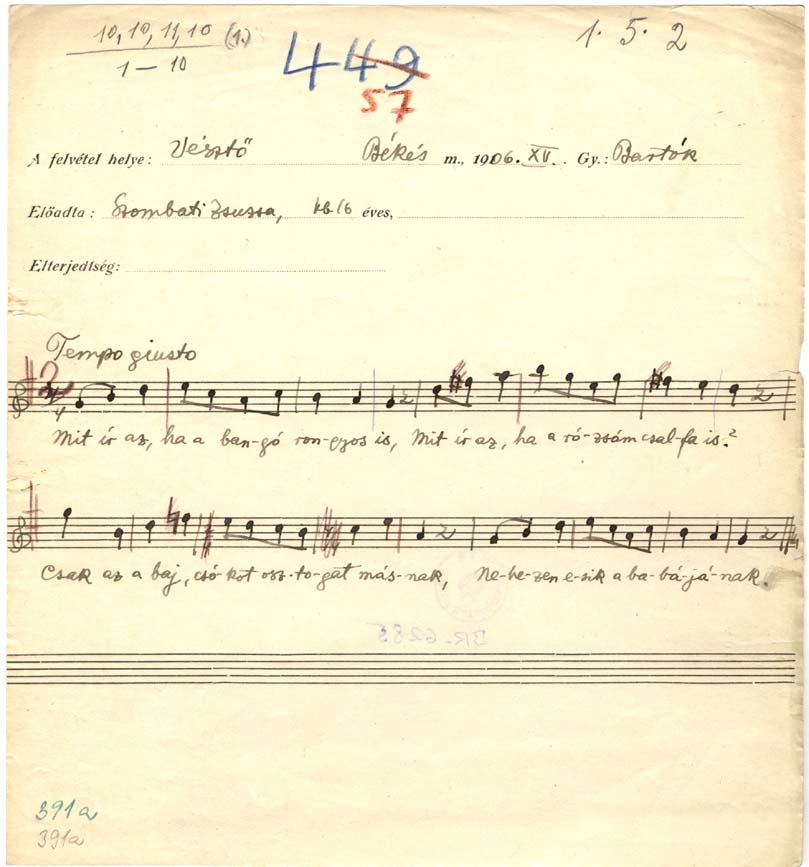 10, 10, 11, 10 (1.)
1 – 10
449
57
1. 5. 2
A felvétel helye: Vésztő Békés m., 1906. XV. Gy.: Bartók
Előadta: Szombati Zsuzsa, kb 16 éves,
Elterjedtség:
Tempo giusto
Mit ír az, ha a ban-gó ron-gyos is, Mit ír az, ha a ró-zsám csal-fa is?
Csak az a baj, csó-kot osz-to-gat más-nak, Ne-he-zen e-sik a ba-bá-já-nak.
BR-6285
391a
391a